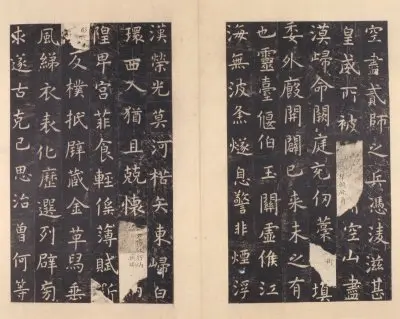 空書貳師之兵憑凌滋甚
皇威所被空山盡
漠歸命闕庭充仞藁填
委外廄開闢已來未之有
也靈臺偃伯玉關虛候江
海無波烽燧息警非煙浮
漢榮光莫河楛矢東歸白
環西入猶且兢懷
隍卑宮菲食輕徭薄賦斫
反樸抵璧藏金革舄垂
風綈衣表化歷選列辟旁
求遂古克己思治曾何等